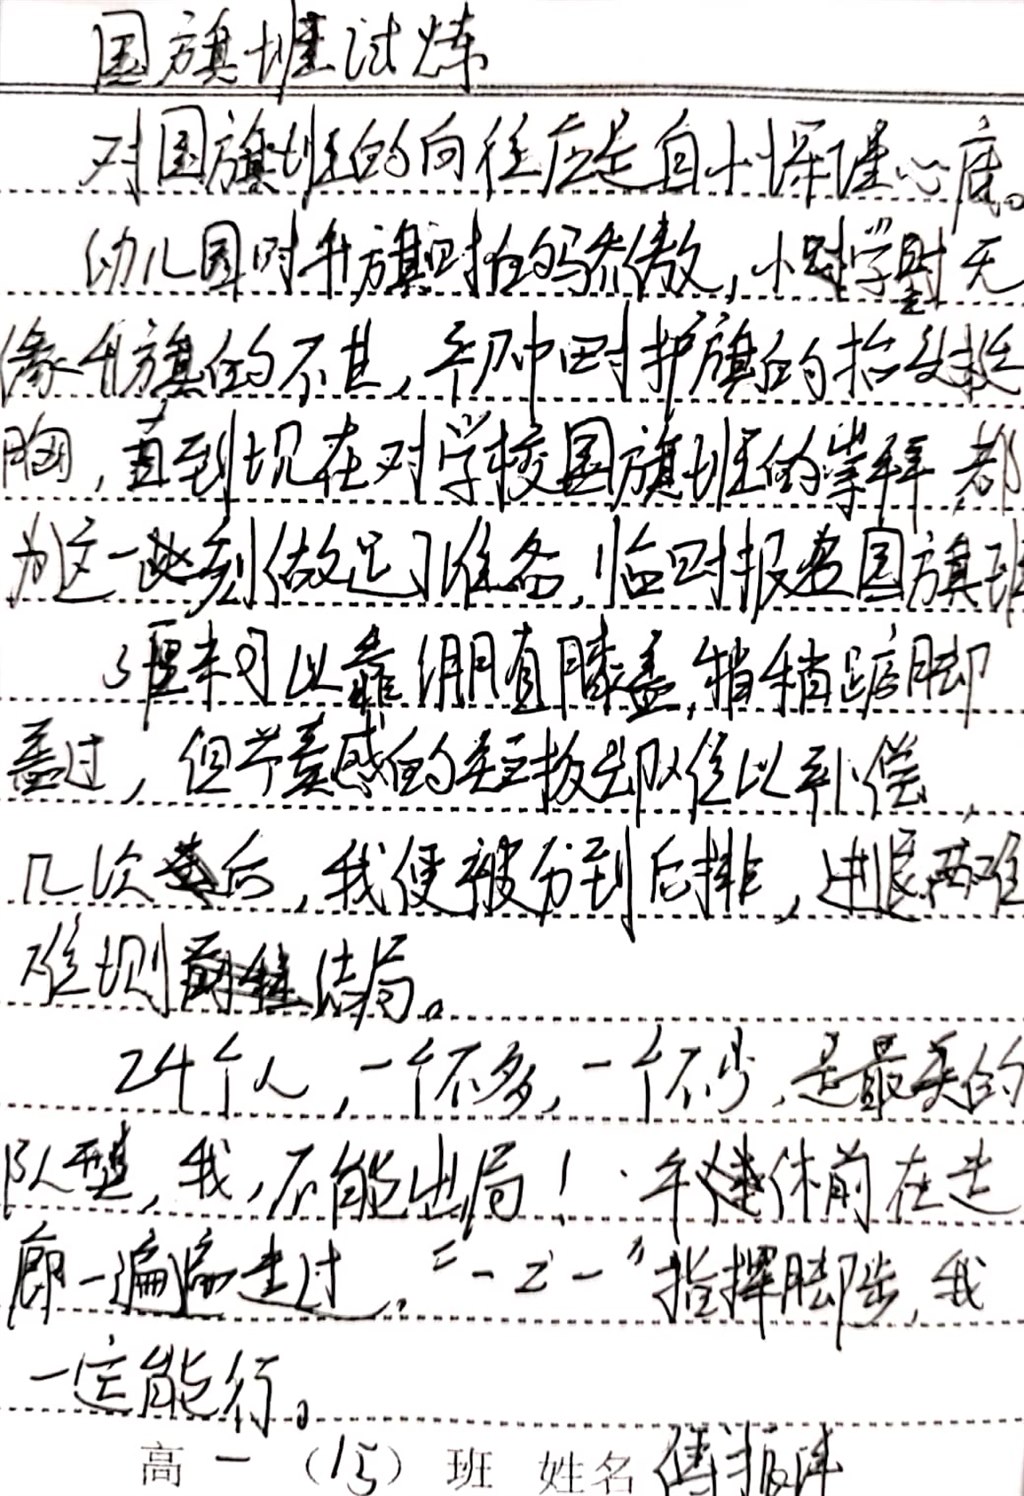 国旗班试炼
对国旗班的向往应是自小深埋心底。
幼儿园时升旗时的骄傲，小学时无
缘升旗的不甘，初中时护旗的抬头挺
胸，直到现在对学校国旗班的崇拜，都
为这一刻做足了准备，临时报卷国旗班
5厘米可以靠绷直膝盖，稍稍踮脚
盖过，但节奏感的却难以补偿，
几次后，我便被分到后排，进退两难
难测结局。
24个人，一个不多，一个不少，是最美的
队型，我，不能出局！午休前在走
廊一遍遍走过，“一二一”指挥脚步，我
一定能行。
高一（15）班 姓名 傅振洋